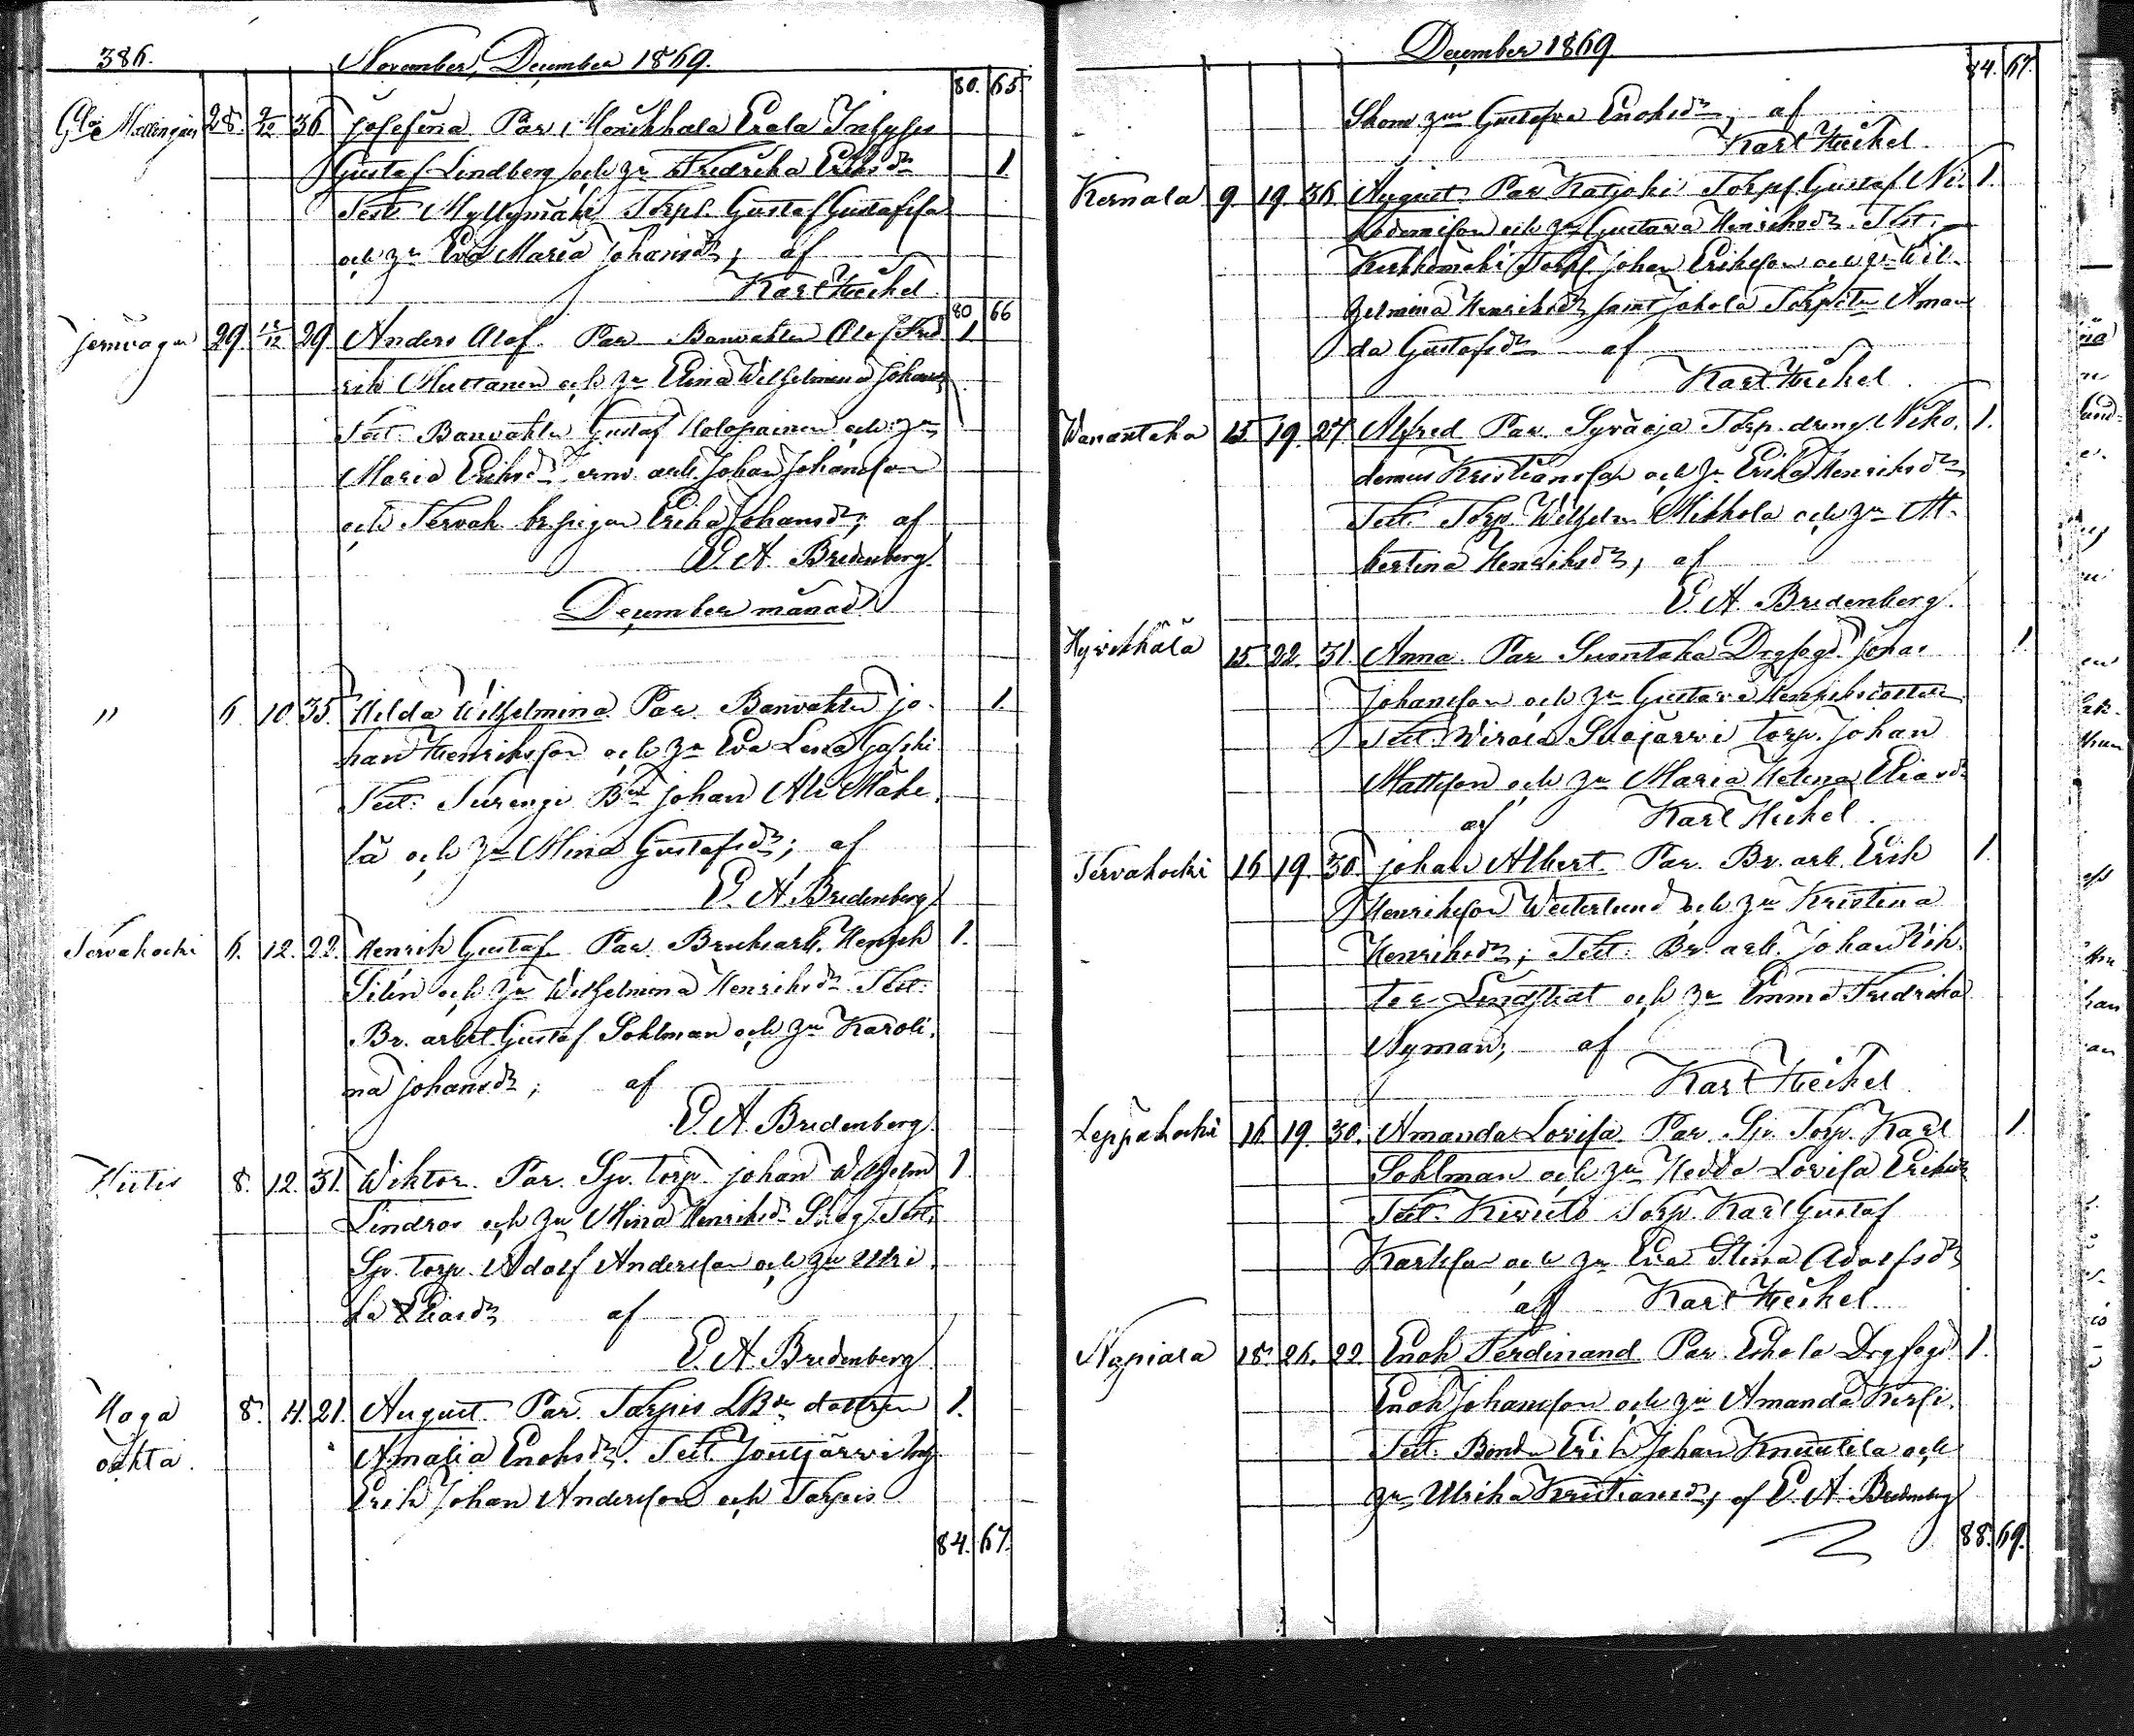 386. November, December 1869.
80. 65.
28. 2/12 36 Josefina Par. Erola Inhyses
Gustaf Lindberg och hu Fredrika Eriksdr 1
Test. Myllymäki Torpf. Gustaf Gustafsson
och hu Eva Maria Johansdr; af
Karl Heikel.
80 66
Jernvägen 29. 12 29 Anders Olof. Par Banvakten Olof Fred- 1
rik Muttanen och hu Elina Wilhelmina Johansdr
Test. Banvakten Gustaf Holopainen och hu
Maria Eriksdr Jernv. arb. Johan Johansson
och Tervak. br. pigan Erika Johansdr; af
E. A. Bredenberg.
December månad
" 6. 10. 35. Hilda Wilhelmina. Par. Banvakten Jo- 1
han Henriksson och hu Eva Lena
Test: Turengi Bdn Johan Ali Mäke-
lä och hu Mina Gustafsdr; af
E. A. Bredenberg
Tervakoski 6. 12. 22. Henrik Gustaf. Par. Bruksarb. Henrik 1.
Silén och hu Wilhelmina Henriksdr Test:
Br. arbet. Gustaf Sohlman och hu Karoli-
na Johansdr; af
E. A. Bredenberg.
8. 12. 31. Wiktor. Par. Sp. torp. Johan Wilhelm 1
Lindroos och hu Mina Henriksdr Skog. Test.
Sp. torp. Adolf Andersson och hu Ulri-
ka Eliasdr af
E. A. Bredenberg
Haga 8. 4. 21. August. Par. Tarpis dottren 1.
oähta. Amalia Enoksdr. Test.
Erik Johan Andersson och Tarpis
84. 67.
December 1869
84. 67.
Gustafva Enoksdr, af
Karl Heikel.
Kernala 9 19 36 August. Par Torpf. Gustaf Ni- 1.
kodemisson och hu Gustava Henriksdr. Test:
Torpf. Johan Eriksson och hu Wil-
helmina Henriksdr samt Jokela Aman-
da Gustafsdr af
Karl Heikel.
Wanantaka 15 19. 27. Alfred Par. Syväoja Torp. dreng. Niko- 1.
demus Kristiansson och hu Erika Henriksdr
Test. Torp. Wilhelm Mikkola och hu Al-
bertina Henriksdr, af
E. A. Bredenberg.
Hyvikkälä 15. 22. 31. Anna. Par Suontaka Drgfogd. Johan 1.
Johansson och hu Gustava
Test. Suojärvi torp. Johan
Mattsson och hu Maria Helena Eliasdr
af Karl Heikel.
Tervakoski 16 19. 30 Johan Albert. Par. Br. arb. Erik 1.
Henriksson Westerlund och hu Kristina
Henriksdr; Test: Br. arb. Johan Wik-
tor Lindstedt och hu Emma Fredrika
Nyman; af
Karl Heikel
Leppäkoski 16. 19. 30. Amanda Lovisa. Par. Sp. Torp. Karl 1.
Sohlman och hu Hedda Lovisa Eriksdr
Test. Torp. Karl Gustaf
Karlsson och hu Eva Stina Adolfsdr
af Karl Heikel.
Napiala 18. 26. 22. Enok Ferdinand Par. Eskola Drgfogd 1.
Enok Johansson och hu Amanda
Test: Bonden Erik Johan Knuutila och
hu Ulrika Kristiansdr, af E. A. Bredenberg
88. 69.